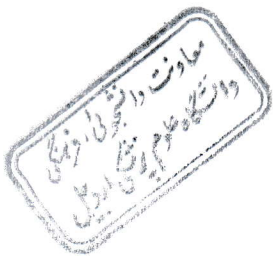 معاونت دانشجوئی فرهنگی
دانشگاه علوم پزشکی اردبیل